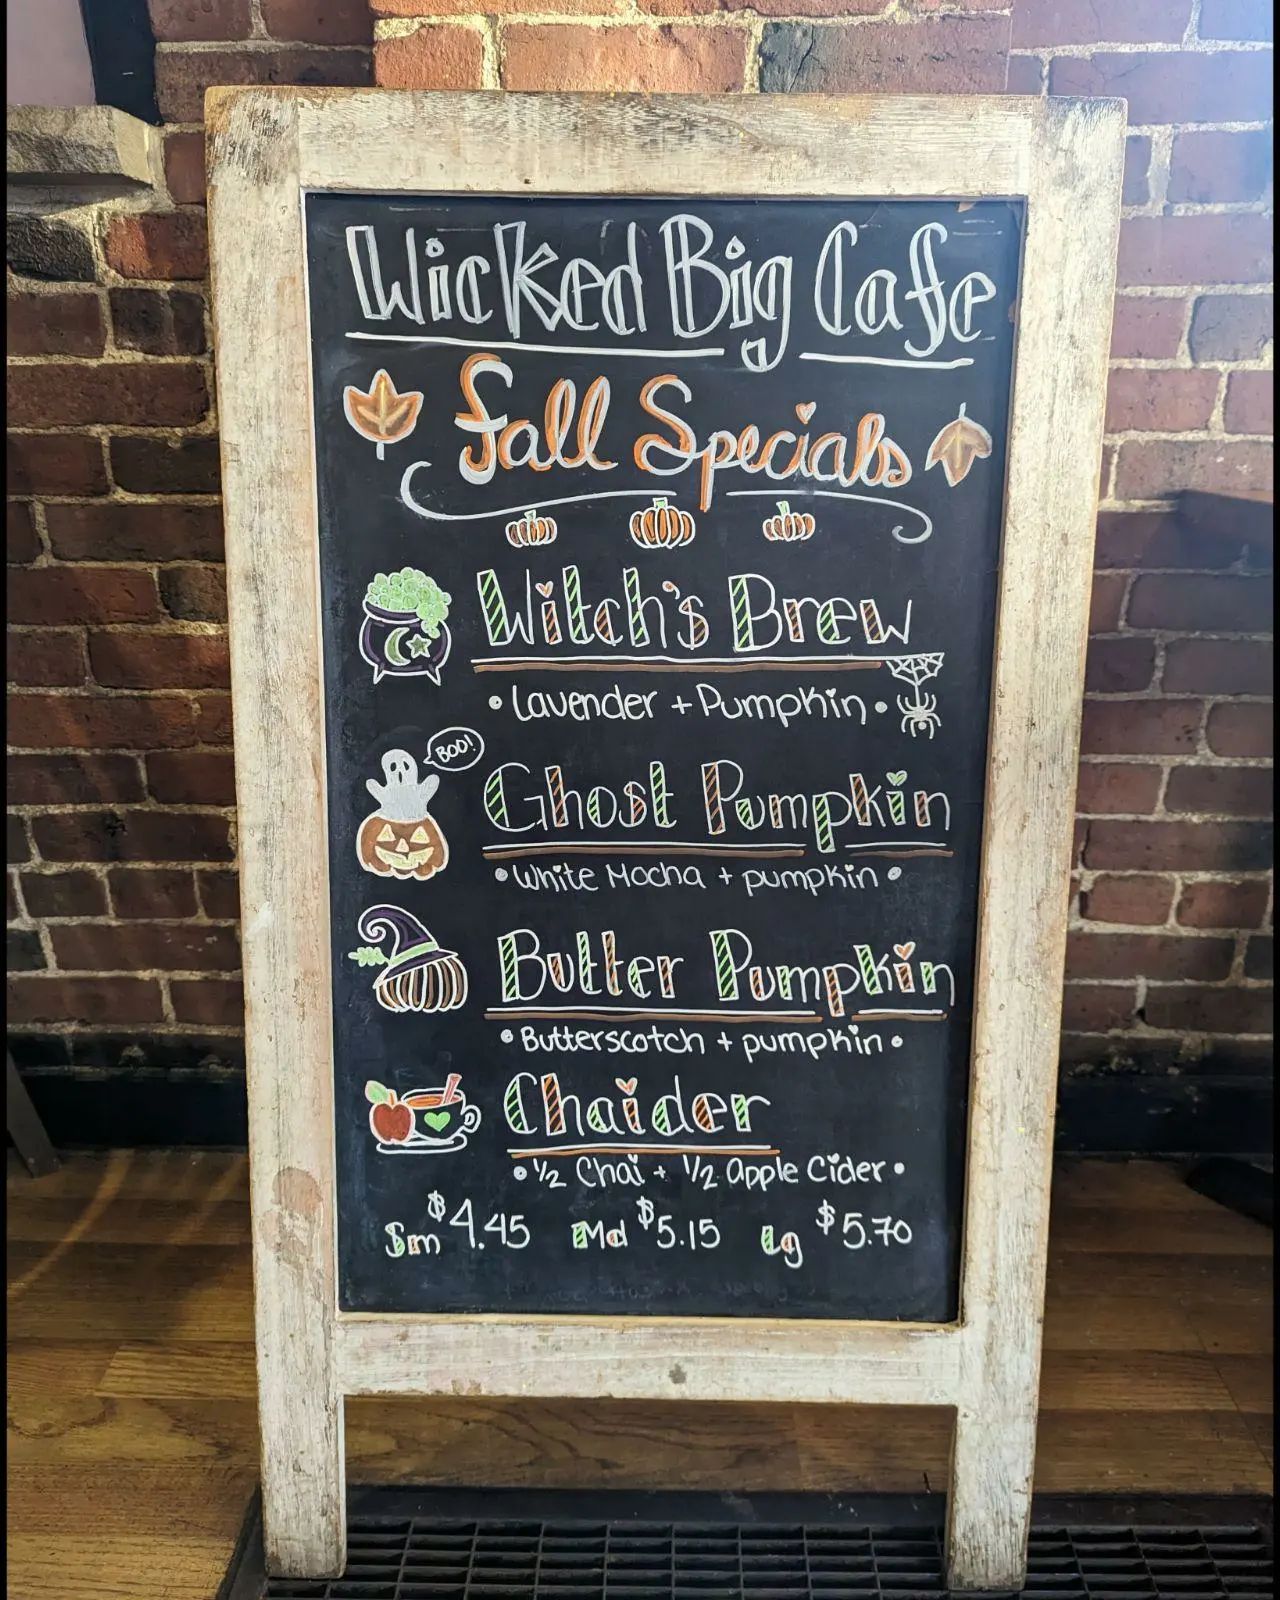 Wicked Big Cafe
Fall Specials
Witch's Brew
• Lavender + Pumpkin •
BOO!
Ghost Pumpkin
• White Mocha + pumpkin •
Butter Pumpkin
• Butterscotch + pumpkin •
Chaider
• 1/2 Chai + 1/2 Apple Cider •
Sm $4.45 Md $5.15 Lg $5.70